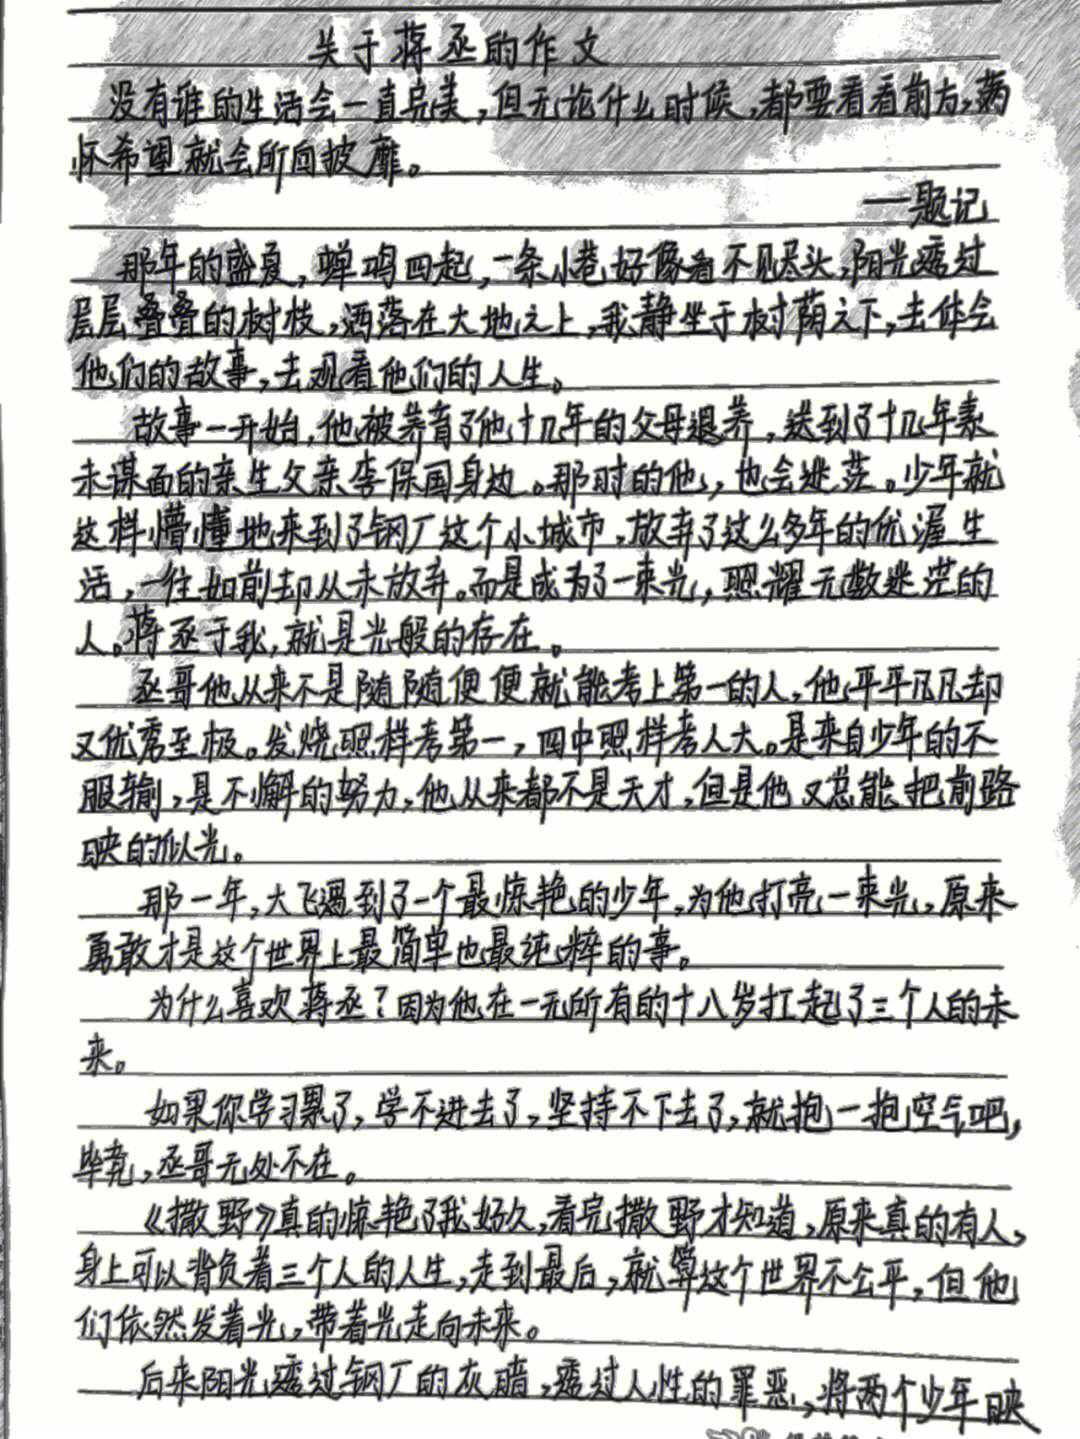 关于蒋丞的作文
没有谁的生活会一直完美，但无论什么时候，都要看看前方，满
怀希望就会所向披靡。
——题记
那年的盛夏，蝉鸣四起，一条小巷好像看不见尽头，阳光透过
层层叠叠的树枝，洒落在大地之上，我静坐于树荫之下，去体会
他们的故事，去观看他们的人生。
故事一开始，他被养育了他十几年的父母退养，送到了十几年素
未谋面的亲生父亲李保国身边。那时的他，也会迷茫。少年就
这样懵懂地来到了钢厂这个小城市，放弃了这么多年的优渥生
活，一往如前却从未放弃。而是成为了一束光，照耀无数迷茫的
人。蒋丞于我，就是光般的存在。
丞哥他从来不是随随便便就能考上第一的人，他平平凡凡却
又优秀至极。发烧照样考第一，四中照样考人大。是来自少年的不
服输，是不懈的努力，他从来都不是天才，但是他又总能把前路
映的似光。
那一年，大飞遇到了一个最惊艳的少年，为他打亮一束光，原来
勇敢才是这个世界上最简单也最纯粹的事。
为什么喜欢蒋丞？因为他在一无所有的十八岁扛起了三个人的未
来。
如果你学习累了，学不进去了，坚持不下去了，就抱一抱空气吧，
毕竟，丞哥无处不在。
《撒野》真的惊艳了我好久，看完撒野才知道，原来真的有人，
身上可以背负着三个人的人生，走到最后，就算这个世界不公平，但他
们依然发着光，带着光走向未来。
后来阳光透过钢厂的灰暗，透过人性的罪恶，将两个少年映